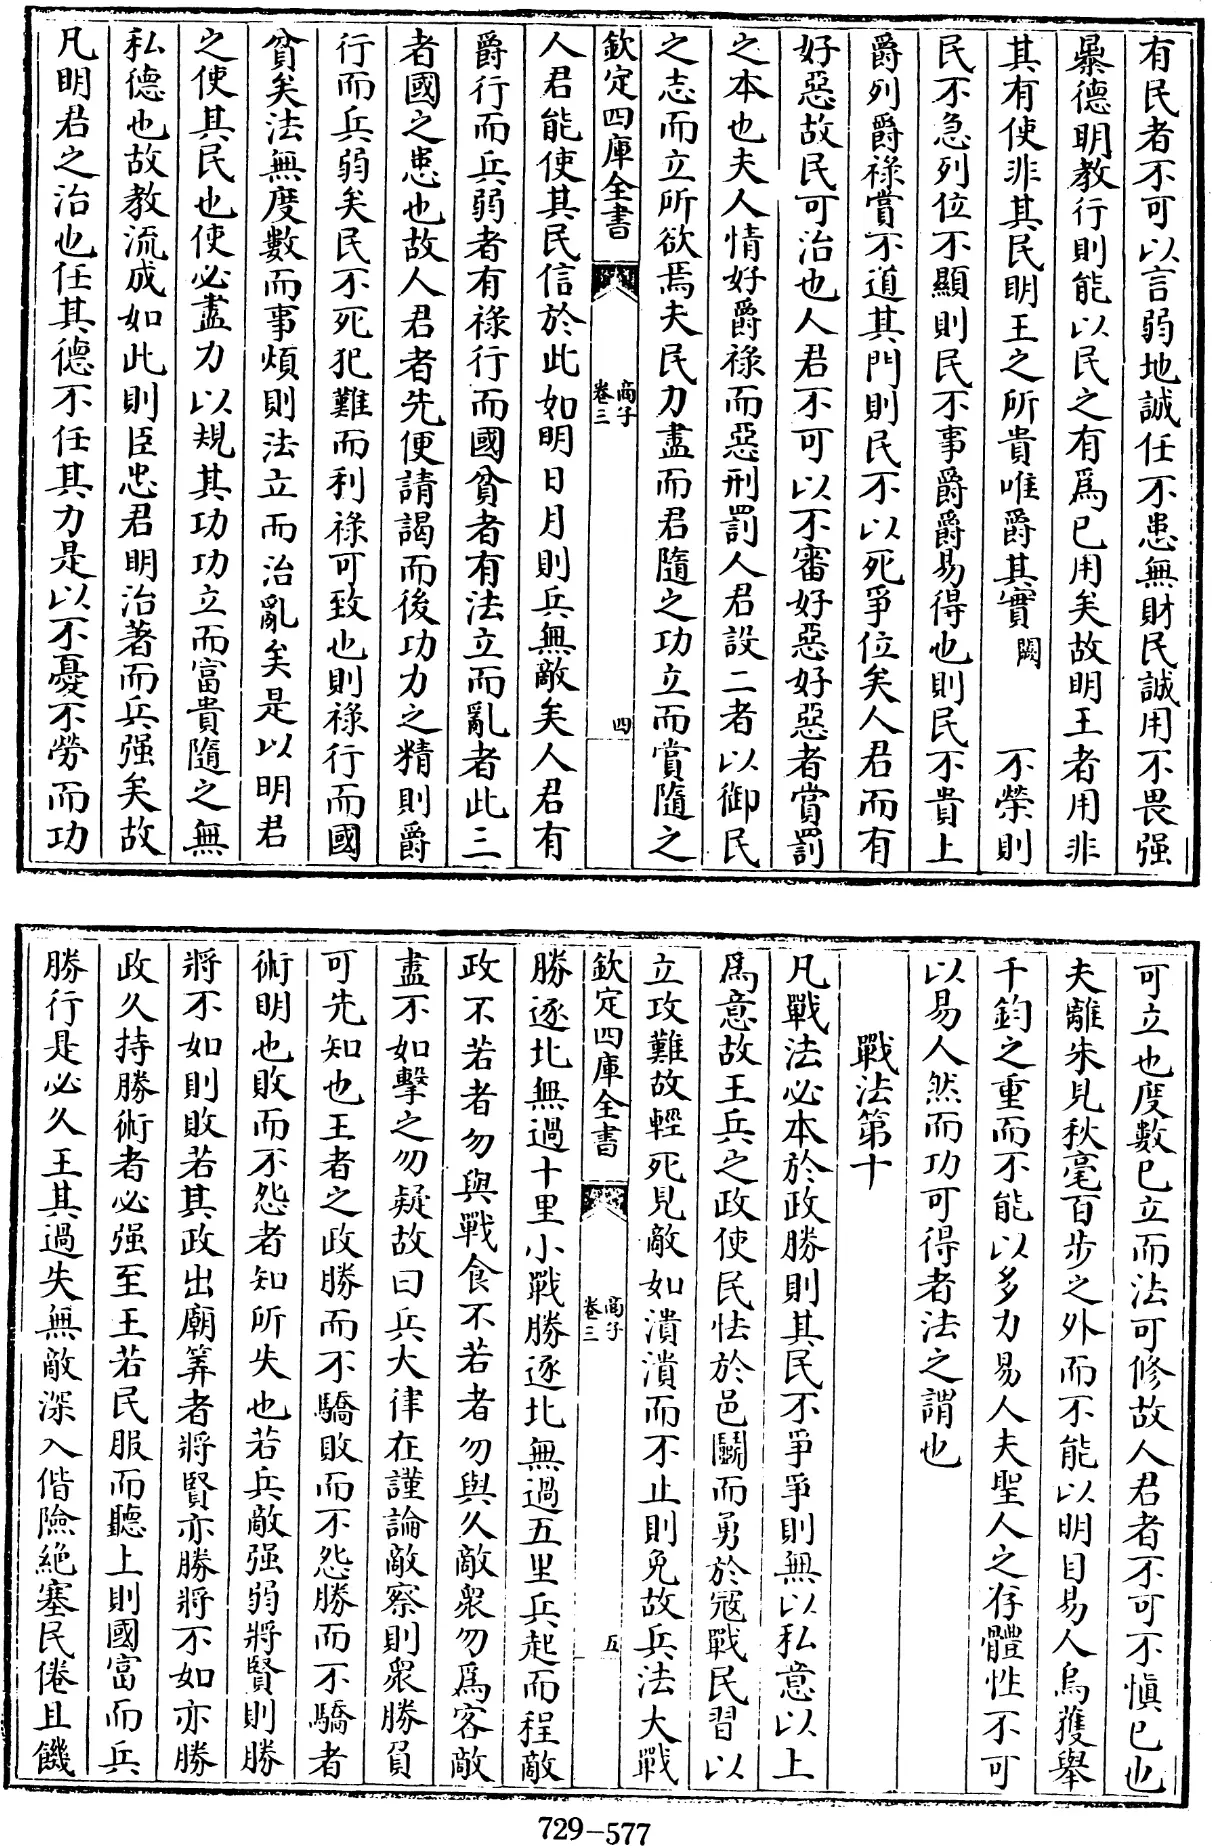 有民者不可以言弱地誠任不患無財民誠用不畏强
暴德明教行則能以民之有爲已用矣故明王者用非
其有使非其民明王之所貴唯爵其實闕不榮則
民不急列位不顯則民不事爵爵易得也則民不貴上
爵列爵祿賞不道其門則民不以死爭位矣人君而有
好惡故民可治也人君不可以不審好惡好惡者賞罰
之本也夫人情好爵祿而惡刑罰人君設二者以御民
之志而立所欲焉夫民力盡而君隨之功立而賞隨之
欽定四庫全書
商子
卷三
四
人君能使其民信於此如明日月則兵無敵矣人君有
爵行而兵弱者有祿行而國貧者有法立而亂者此三
者國之患也故人君者先便請謁而後功力之精則爵
行而兵弱矣民不死犯難而利祿可致也則祿行而國
貧矣法無度數而事煩則法立而治亂矣是以明君
之使其民也使必盡力以規其功功立而富貴隨之無
私德也故教流成如此則臣忠君明治著而兵强矣故
凡明君之治也任其德不任其力是以不憂不勞而功
可立也度數已立而法可修故人君者不可不愼已也
夫離朱見秋毫百步之外而不能以明目易人烏獲舉
千鈞之重而不能以多力易人夫聖人之存體性不可
以易人然而功可得者法之謂也
戰法第十
凡戰法必本於政勝則其民不爭爭則無以私意以上
爲意故王兵之政使民怯於邑鬭而勇於寇戰民習以
立攻難故輕死見敵如潰潰而不止則免故兵法大戰
欽定四庫全書
商子
卷三
五
勝逐北無過十里小戰勝逐北無過五里兵起而程敵
政不若者勿與戰食不若者勿與久敵衆勿爲客敵
盡不如擊之勿疑故曰兵大律在謹論敵察則衆勝負
可先知也王者之政勝而不驕敗而不怨勝而不驕者
術明也敗而不怨者知所失也若兵敵强弱將賢則勝
將不如則敗若其政出廟筭者將賢亦勝將不如亦勝
政久持勝術者必强至王若民服而聽上則國富而兵
勝行是必久王其過失無敵深入偕險絶塞民倦且饑
729-577